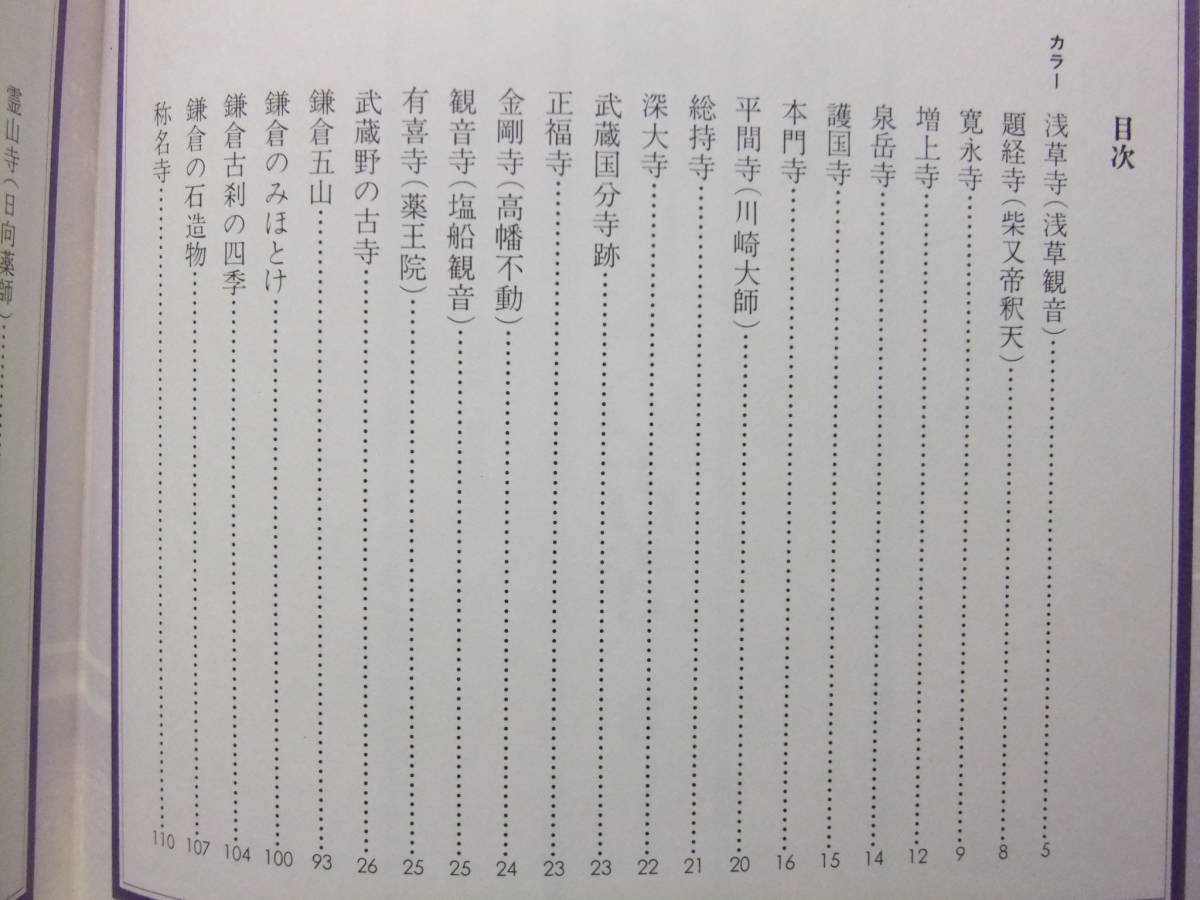 目次
カラー
浅草寺(浅草観音)……5
題経寺(柴又帝釈天)……8
寛永寺……9
増上寺……12
泉岳寺……14
護国寺……15
本門寺……16
平間寺(川崎大師)……20
総持寺……21
深大寺……22
武蔵国分寺跡……23
正福寺……23
金剛寺(高幡不動)……24
観音寺(塩船観音)……25
有喜寺(薬王院)……25
武蔵野の古寺……26
鎌倉五山……93
鎌倉のみほとけ……100
鎌倉古刹の四季……104
鎌倉の石造物……107
称名寺……110
霊山寺(日向薬師)……